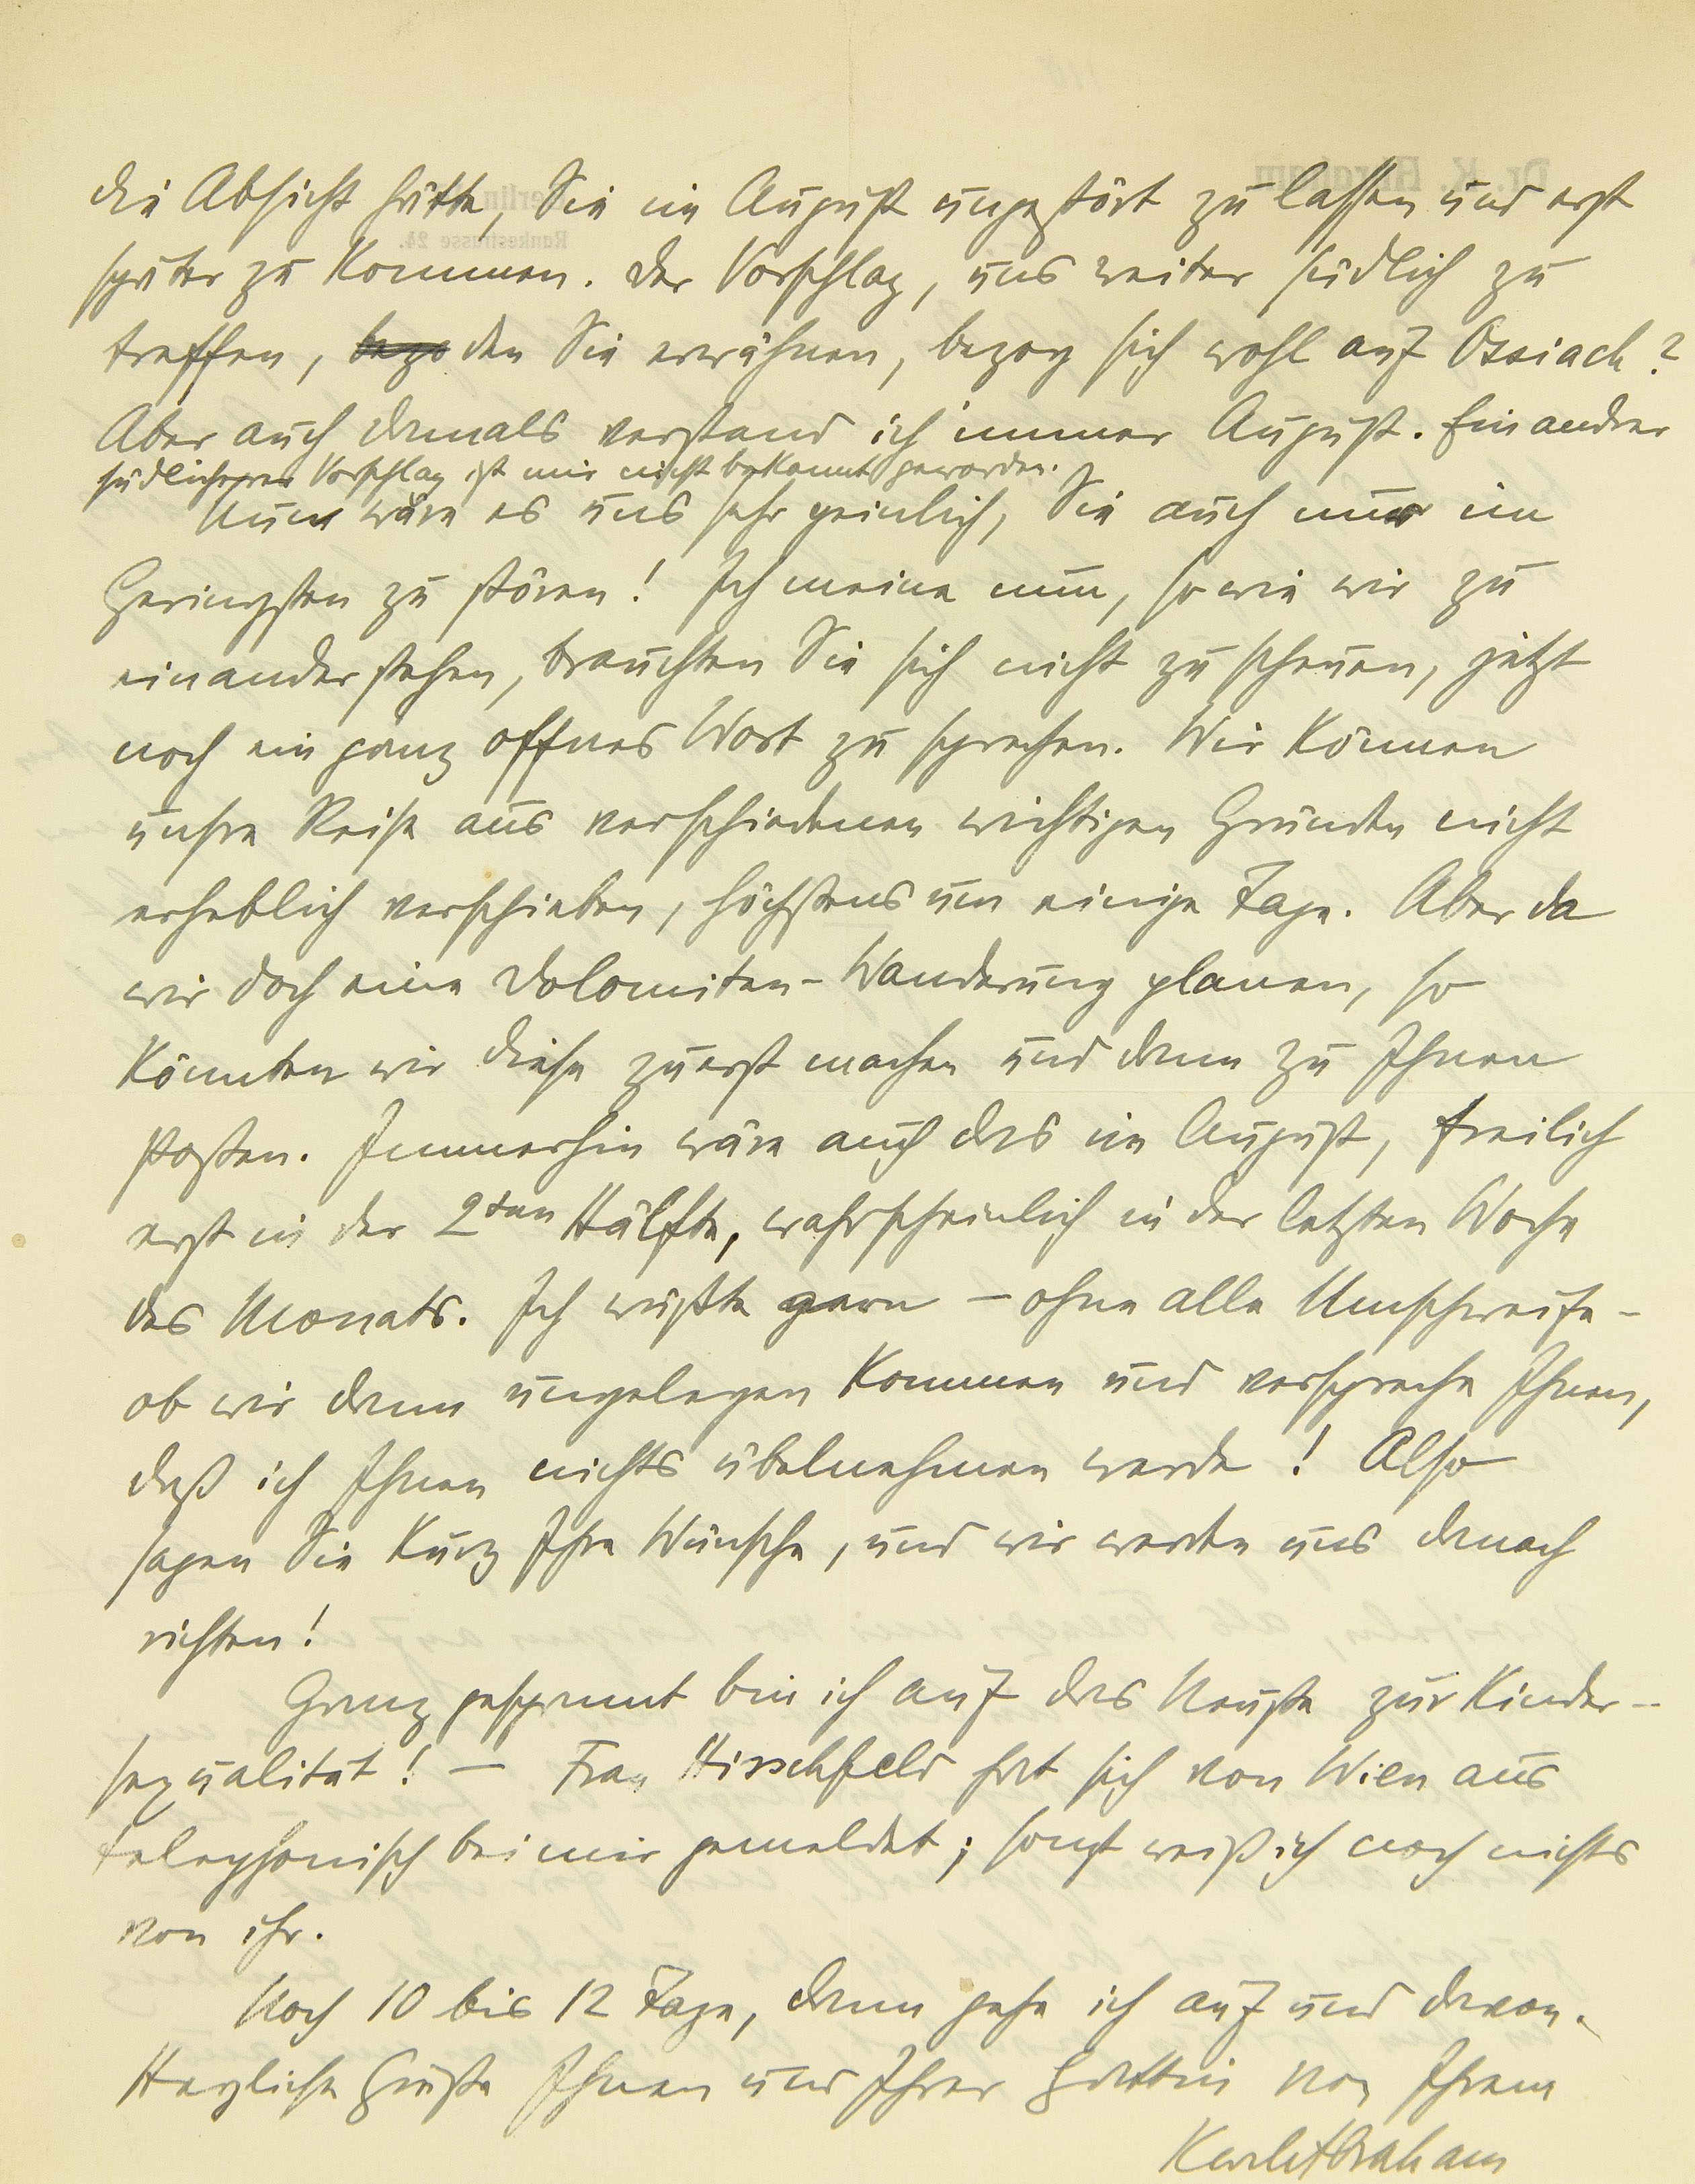 die Absicht hätte, Sie im August ungestört zu lassen und erst
später zu kommen. Der Vorschlag, uns weiter südlich zu
treffen, den Sie erwähnen, bezog sich wohl auf Ossiach?
Aber auch damals verstand ich immer August. Ein andrer
südlicherer Vorschlag ist mir nicht bekannt geworden.
Nun wäre es uns sehr peinlich, Sie auch nur im
Geringsten zu stören! Ich meine nun, so wie wir zu
einander stehen, brauchten Sie sich nicht zu scheuen, jetzt
noch ein ganz offnes Wort zu sprechen. Wir können
unsre Reise aus verschiedenen wichtigen Gründen nicht
erheblich verschieben, höchstens um einige Tage. Aber da
wir doch eine Dolomiten-Wanderung planen, so
könnten wir diese zuerst machen und dann zu Ihnen
stoßen. Immerhin wäre auch das im August, freilich
erst in der 2ten Hälfte, wahrscheinlich in der letzten Woche
des Monats. Ich wüßte gern – ohne alle Umschweife –
ob wir dann ungelegen kommen und verspreche Ihnen,
daß ich Ihnen nichts übelnehmen werde! Also
sagen Sie kurz Ihre Wünsche, und wir werden uns danach
richten!
Ganz gespannt bin ich auf das Neuste zur Kinder-
sexualität! – Frau Hirschfeld hat sich von Wien aus
telephonisch bei mir gemeldet; sonst weiß ich noch nichts
von ihr.
Noch 10 bis 12 Tage, dann gehe ich auf und davon.
Herzliche Grüße Ihnen und Ihrer Gattin von Ihrem
Karl Abraham
Dr. K. Abraham
Berlin
Rankestrasse 24.